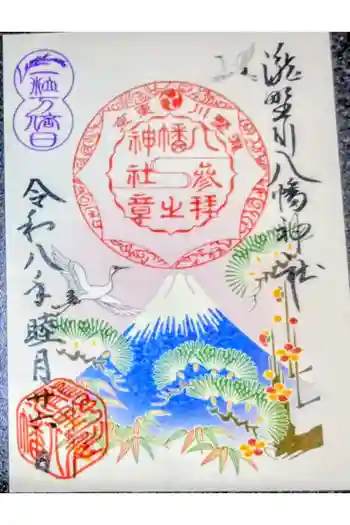 瀧野川八幡神社
八幡神社
参拝之章
一粒万倍日
令和八年睦月廿六日